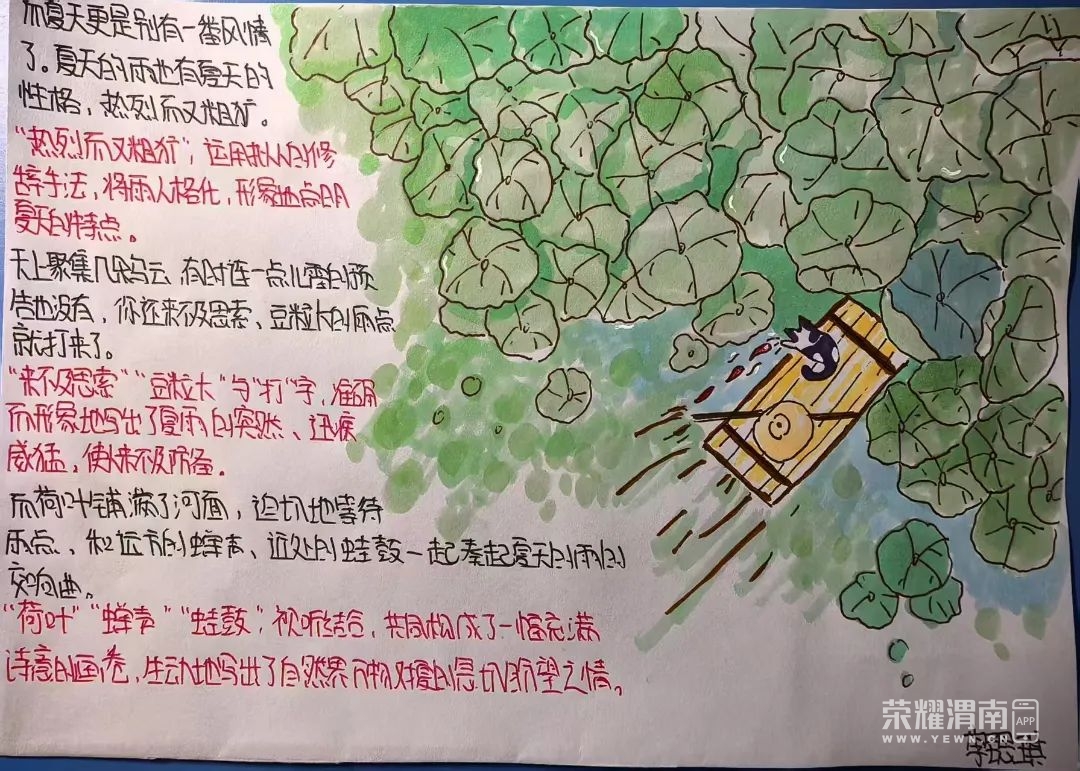 而夏天更是别有一番风情
了。夏天的雨也有夏天的
性格，热烈而又粗犷。
“热烈而又粗犷”，运用拟人的修
辞手法，将雨人格化，形象地点明
夏天的特点。
天上聚集几朵乌云，有时连一点儿雷的预
告也没有，你还来不及思索、豆粒大的雨点
就打来了。
“来不及思索”“豆粒大”与“打”字，准确
而形象地写出了夏雨的突然、迅疾
威猛，使人来不及防备。
而荷叶铺满了河面，迫切地等待
雨点，和远方的蝉声、近处的蛙鼓一起奏起夏天的雨的
交响曲。
“荷叶”“蝉声”“蛙鼓”，视听结合，共同构成了一幅充满
诗意的画卷，生动地写出了自然界万物对夏的急切盼望之情。
荣耀渭南APP
WWW.YEWN.CN